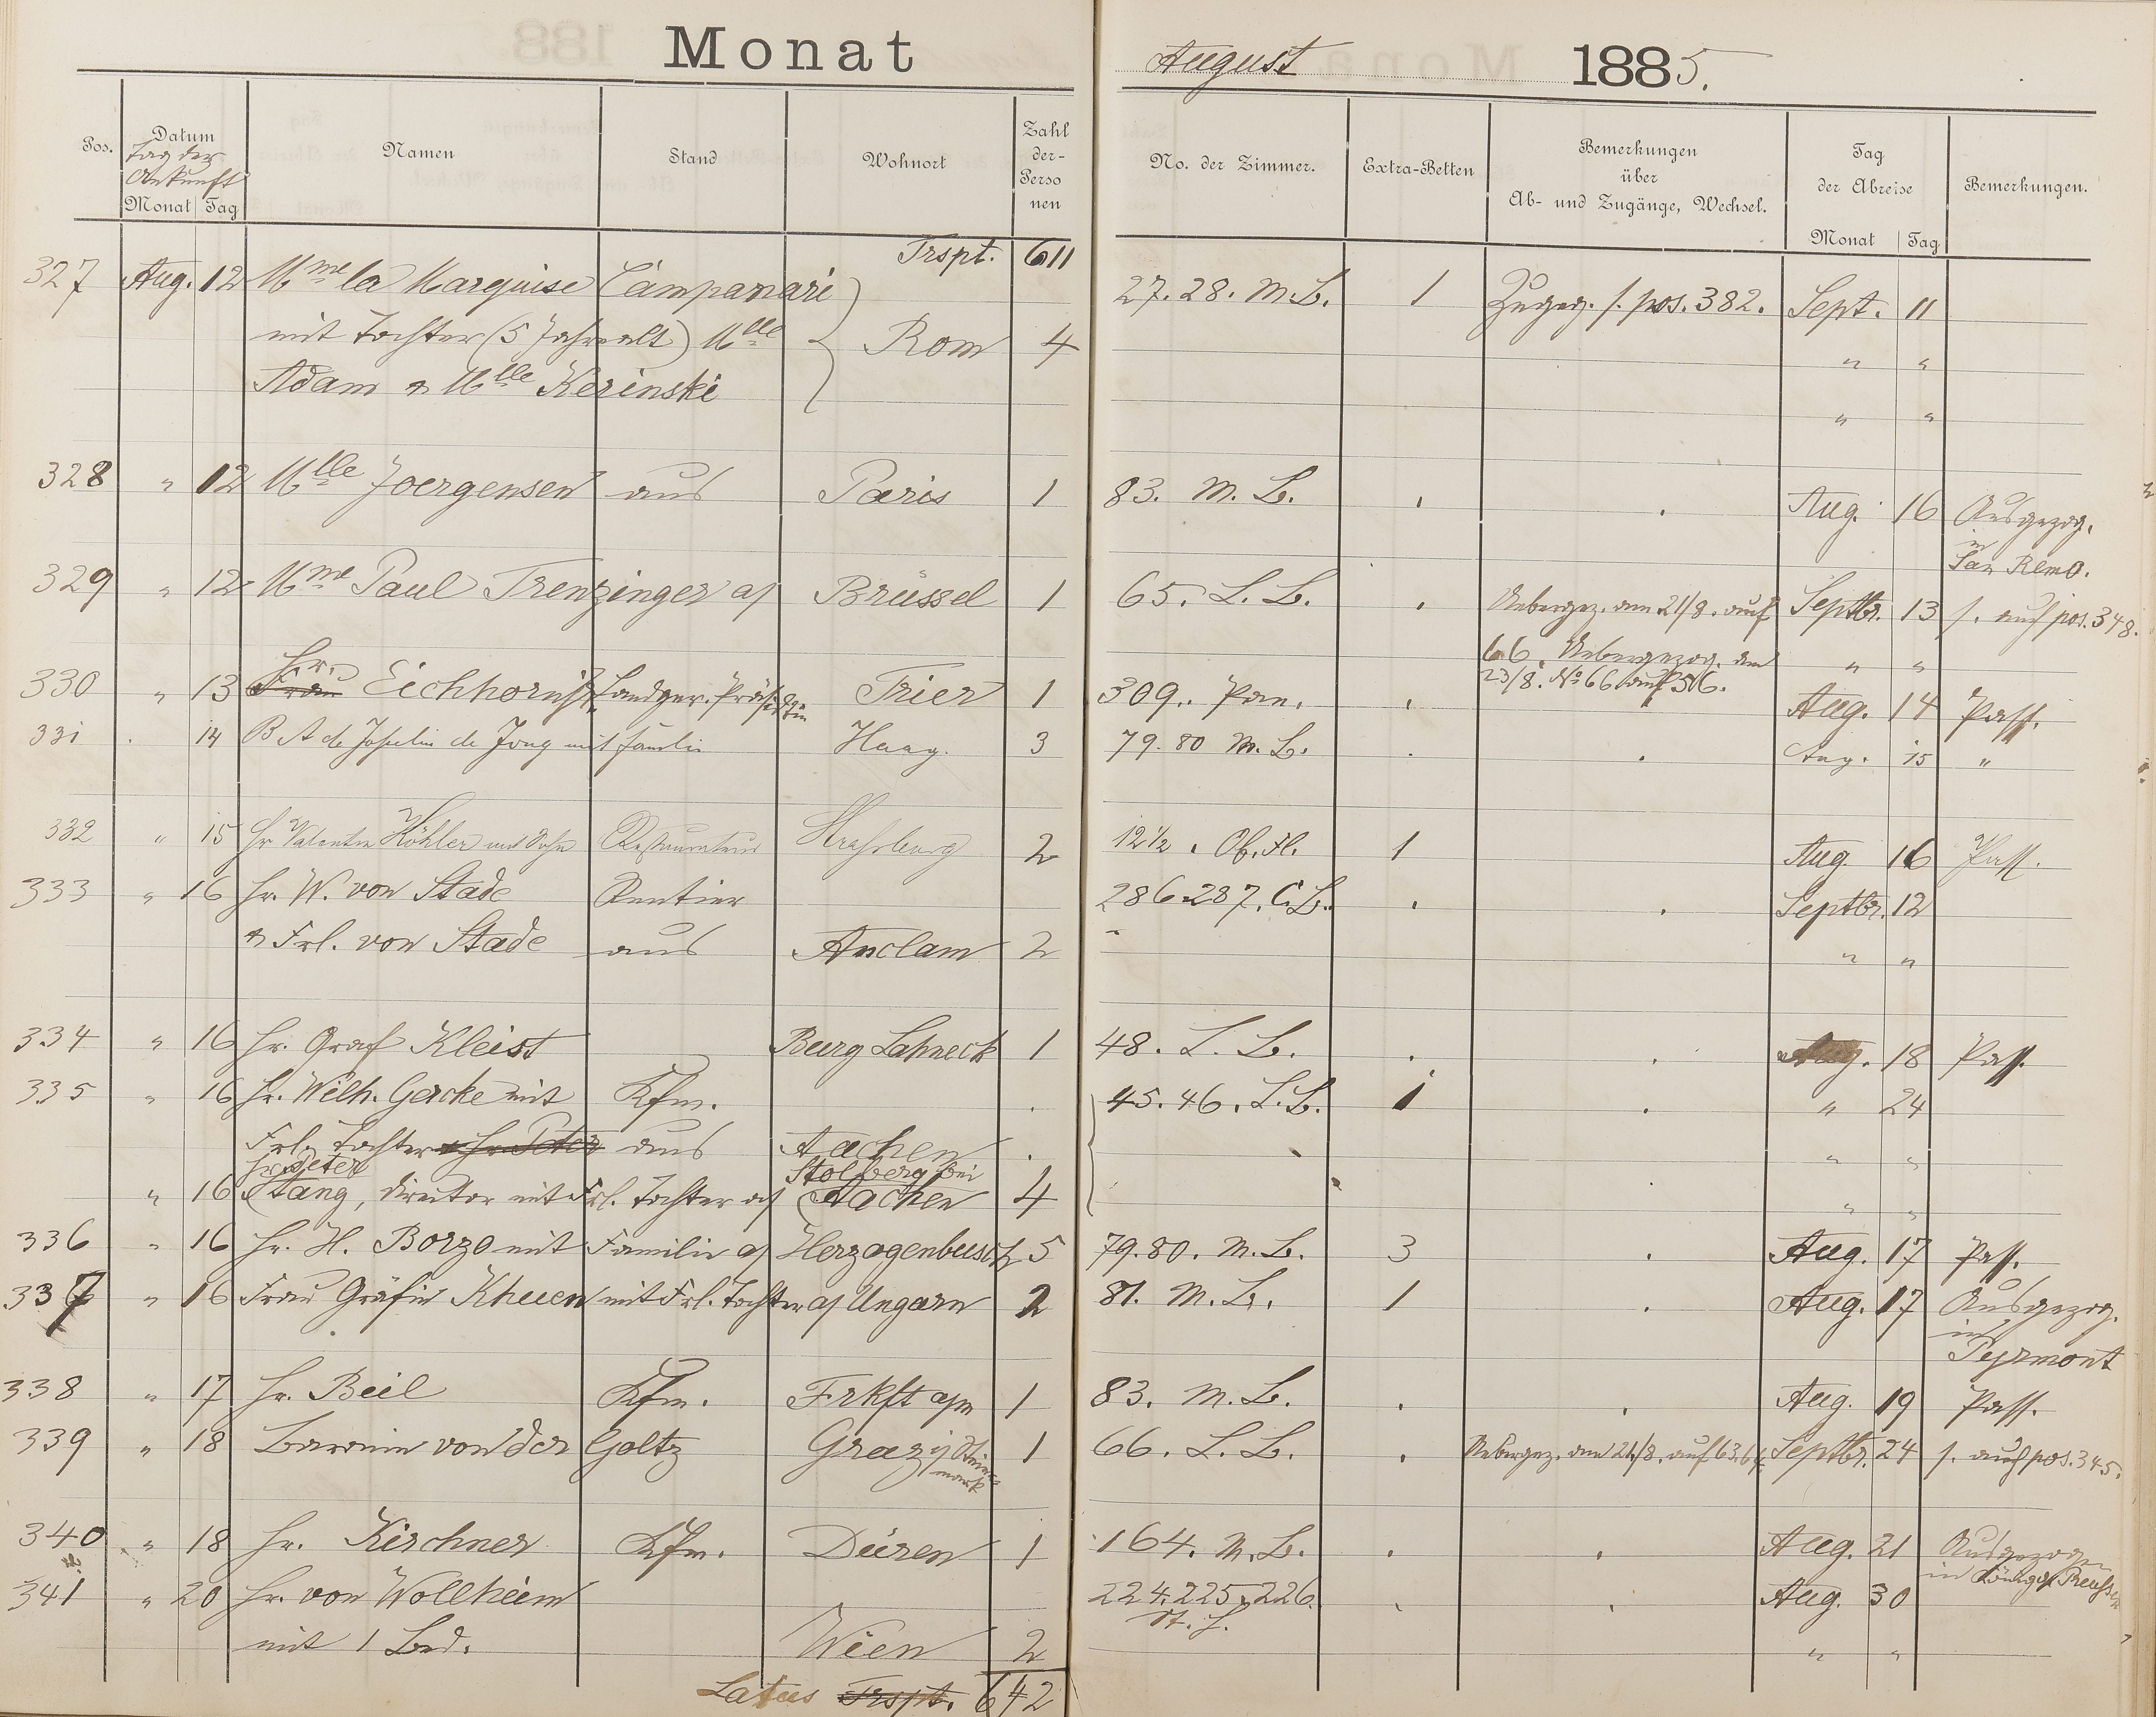 Monat August 1885.
Pos. Datum Namen Stand Wohnort Zahl der Perso nen No. der Zimmer. Extra-Betten Bemerkungen über Ab- und Zugänge, Wechsel. Tag der Abreise Bemerkungen.
Tag der Ankunft
Monat Tag Monat Tag
Trspt. 611
327 Aug. 12 Mme la Marquise Campanari 27. 28. M.B. 1 Zugeg. s. pos. 382. Sept. 11
mit Tochter (5 Jahre alt) Mlle Rom 4 " "
Adam & Mlle Kerinski " "
328 " 12 Mlle Joergensen aus Paris 1 83. M. B. Aug. 16 Ausgezog.
in San Remo.
329 " 12 Mme Paul Trenzinger a/ Brüssel 1 65. L. B. Uebergez. am 21/8. auf Septbr. 13 s. auch pos. 348.
66. Uebergezog. am " "
23/8. No 66 auf 56.
330 " 13 Frau Hr. Eichhorn Landger. Präsident Trier 1 309. Pan. Aug. 14 Pass.
331 . 14 B A de Josselin de Jong mit Familie Haag. 3 79. 80 M. B. Aug. 15 "
332 " 15 Hr Valentin Köhler und Sohn Restaurateur Strassburg 2 12 1/2. Ob. Fl. 1 Aug 16 Pass.
333 " 16 Hr. W. von Stade Rentier 286-287. C. B. Septbr. 12
& Frl. von Stade aus Anclam 2 " "
334 " 16 Hr. Graf Kleist Burg Lahneck 1 48. L. B. Aug. 18 Pass.
335 " 16 Hr. Wilh. Gercke mit Kfm. 45. 46. L. B. 1 " 24
Frl. Tochter & Hr. Peter aus Aachen " "
Hr. Peter Stolberg bei
" 16 Stang, Director mit Frl. Tochter a/ Aachen 4 " "
336 " 16 Hr. H. Borzo mit Familie a/ Herzogenbusch 5 79. 80. M. B. 3 Aug. 17 Pass.
337 " 16 Frau Gräfin Khuen mit Frl. Tochter a/ Ungarn 2 81. M. B. 1 Aug. 17 Ausgezog.
in Pyrmont
338 " 17 Hr. Beil Kfm. Frkft a/m 1 83. M. B. Aug. 19 Pass.
339 " 18 Baronin von der Goltz Graz i/ Steiermark 1 66. L. B. Uebergez. am 21/8. auf 63. 64. Septbr. 24 s. auch pos. 345.
340 " 18 Hr. Kirchner Kfm. Düren 1 164. M. B. Aug. 21 Ausgezogen
in König v. Preussen
341 " 20 Hr. von Wollheim 224. 225. 226. Aug. 30
mit 1 Bed. Wien 2 " "
Latus Trspt. 642